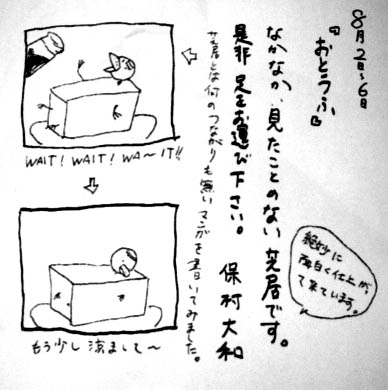 8月2日〜6日
『おとうふ』
なかなか、見たことのない芝居です。
是非 足をお運び下さい。 保村大和
芝居とは何のつながりも無いマンガを書いてみました。
絶妙に
面白く仕上が
って来ています。
WAIT! WAIT! WA〜IT!!
もう少し涼まして〜